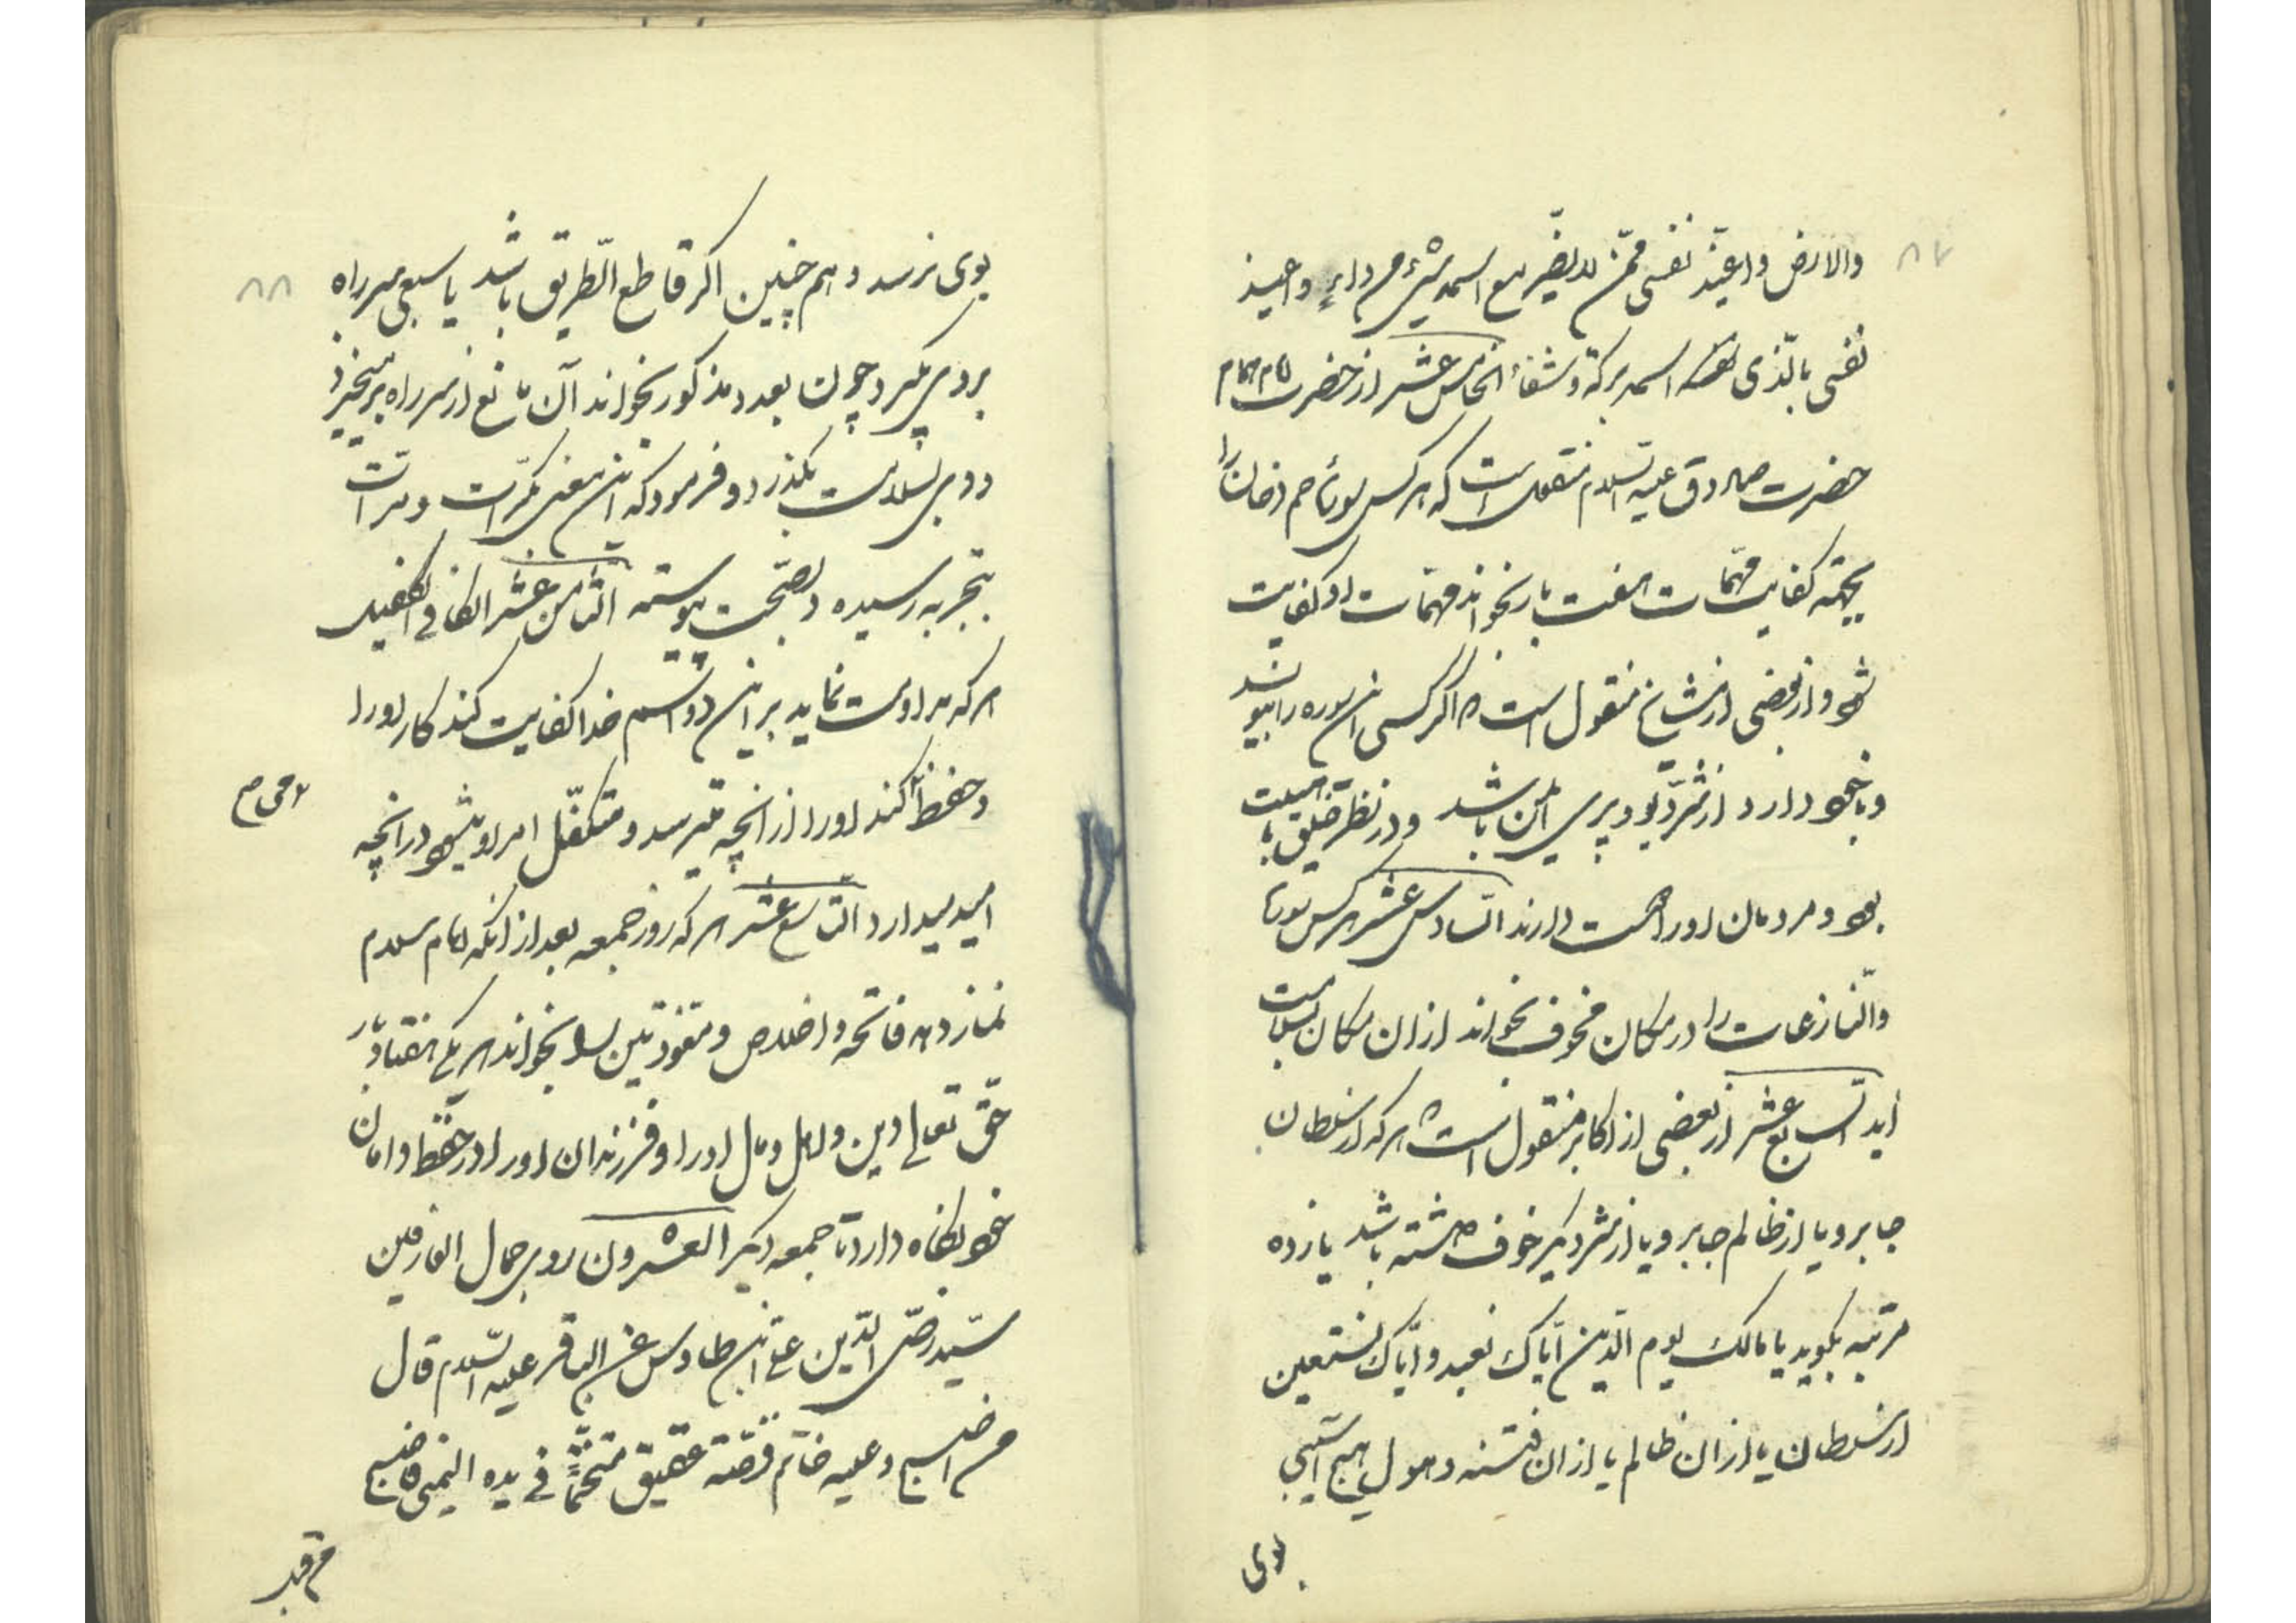 ۸۷
والارض واعیذ نفسی بمن لا یضر مع اسمه شیء من داء واعیذ
نفسی بالذی اسمه برکة وشفاء الخامس عشر از حضرت امام همام
حضرت صادق علیه السلام منقول است که هر کس سورۀ حم دخان را
بجهة کفایت مهمات هفت بار بخواند مهمات او کفایت
شود و از بعضی از مشایخ منقول است که اگر کسی این سوره را بنویسد
و با خود دارد از شر دیو و پری ایمن باشد و در نظر خلق با هیبت
بود و مردمان او را دوست دارند السادس عشر هر کس سورۀ
والنازعات را در مکان مخوف بخواند از ان مکان بسلامت
آید السابع عشر از بعضی از اکابر منقول است که هر که از سلطان
جابر و یا از ظالم جابر و یا از شر دیگر خوف داشته باشد یازده
مرتبه بگوید یا مالک یوم الدین ایاک نعبد وایاک نستعین
از سلطان یا از ان ظالم یا از ان فتنه و هول هیچ آسیبی
بوی
۸۸
بوی نرسد و هم چنین اگر قاطع الطریق باشد یا سبعی سر راه
بر وی گیرد چون بعدد مذکور بخواند آن مانع از سر راه برخیزد
و وی بسلامت بگذرد و فرمود که این معنی بکرات و مرات
بتجربه رسیده و بصحت پیوسته الثامن عشر الکافی الکفیل
هر که مداومت نماید بر این دو اسم خدا کفایت کند کار او را
و حفظ کند او را از انچه میترسد و متکفل امر او میشود در انچه
امید میدارد التاسع عشر هر که روز جمعه بعد از انکه امام سلام
نماز دهد فاتحه و اخلاص و معوذتین را بخواند هر یکی هفتاد بار
حق تعالی دین و اهل و مال او را و فرزندان او را در حفظ و امان
خود نگاه دارد تا جمعه دیگر العشرون روی جمال العارفین
سید رضی الدین علی ابن طاوس عن الباقر علیه السلام قال
من اصبح وعلیه خاتم فصه عقیق متختماً فی یده الیمنی فاصبح
من قبل